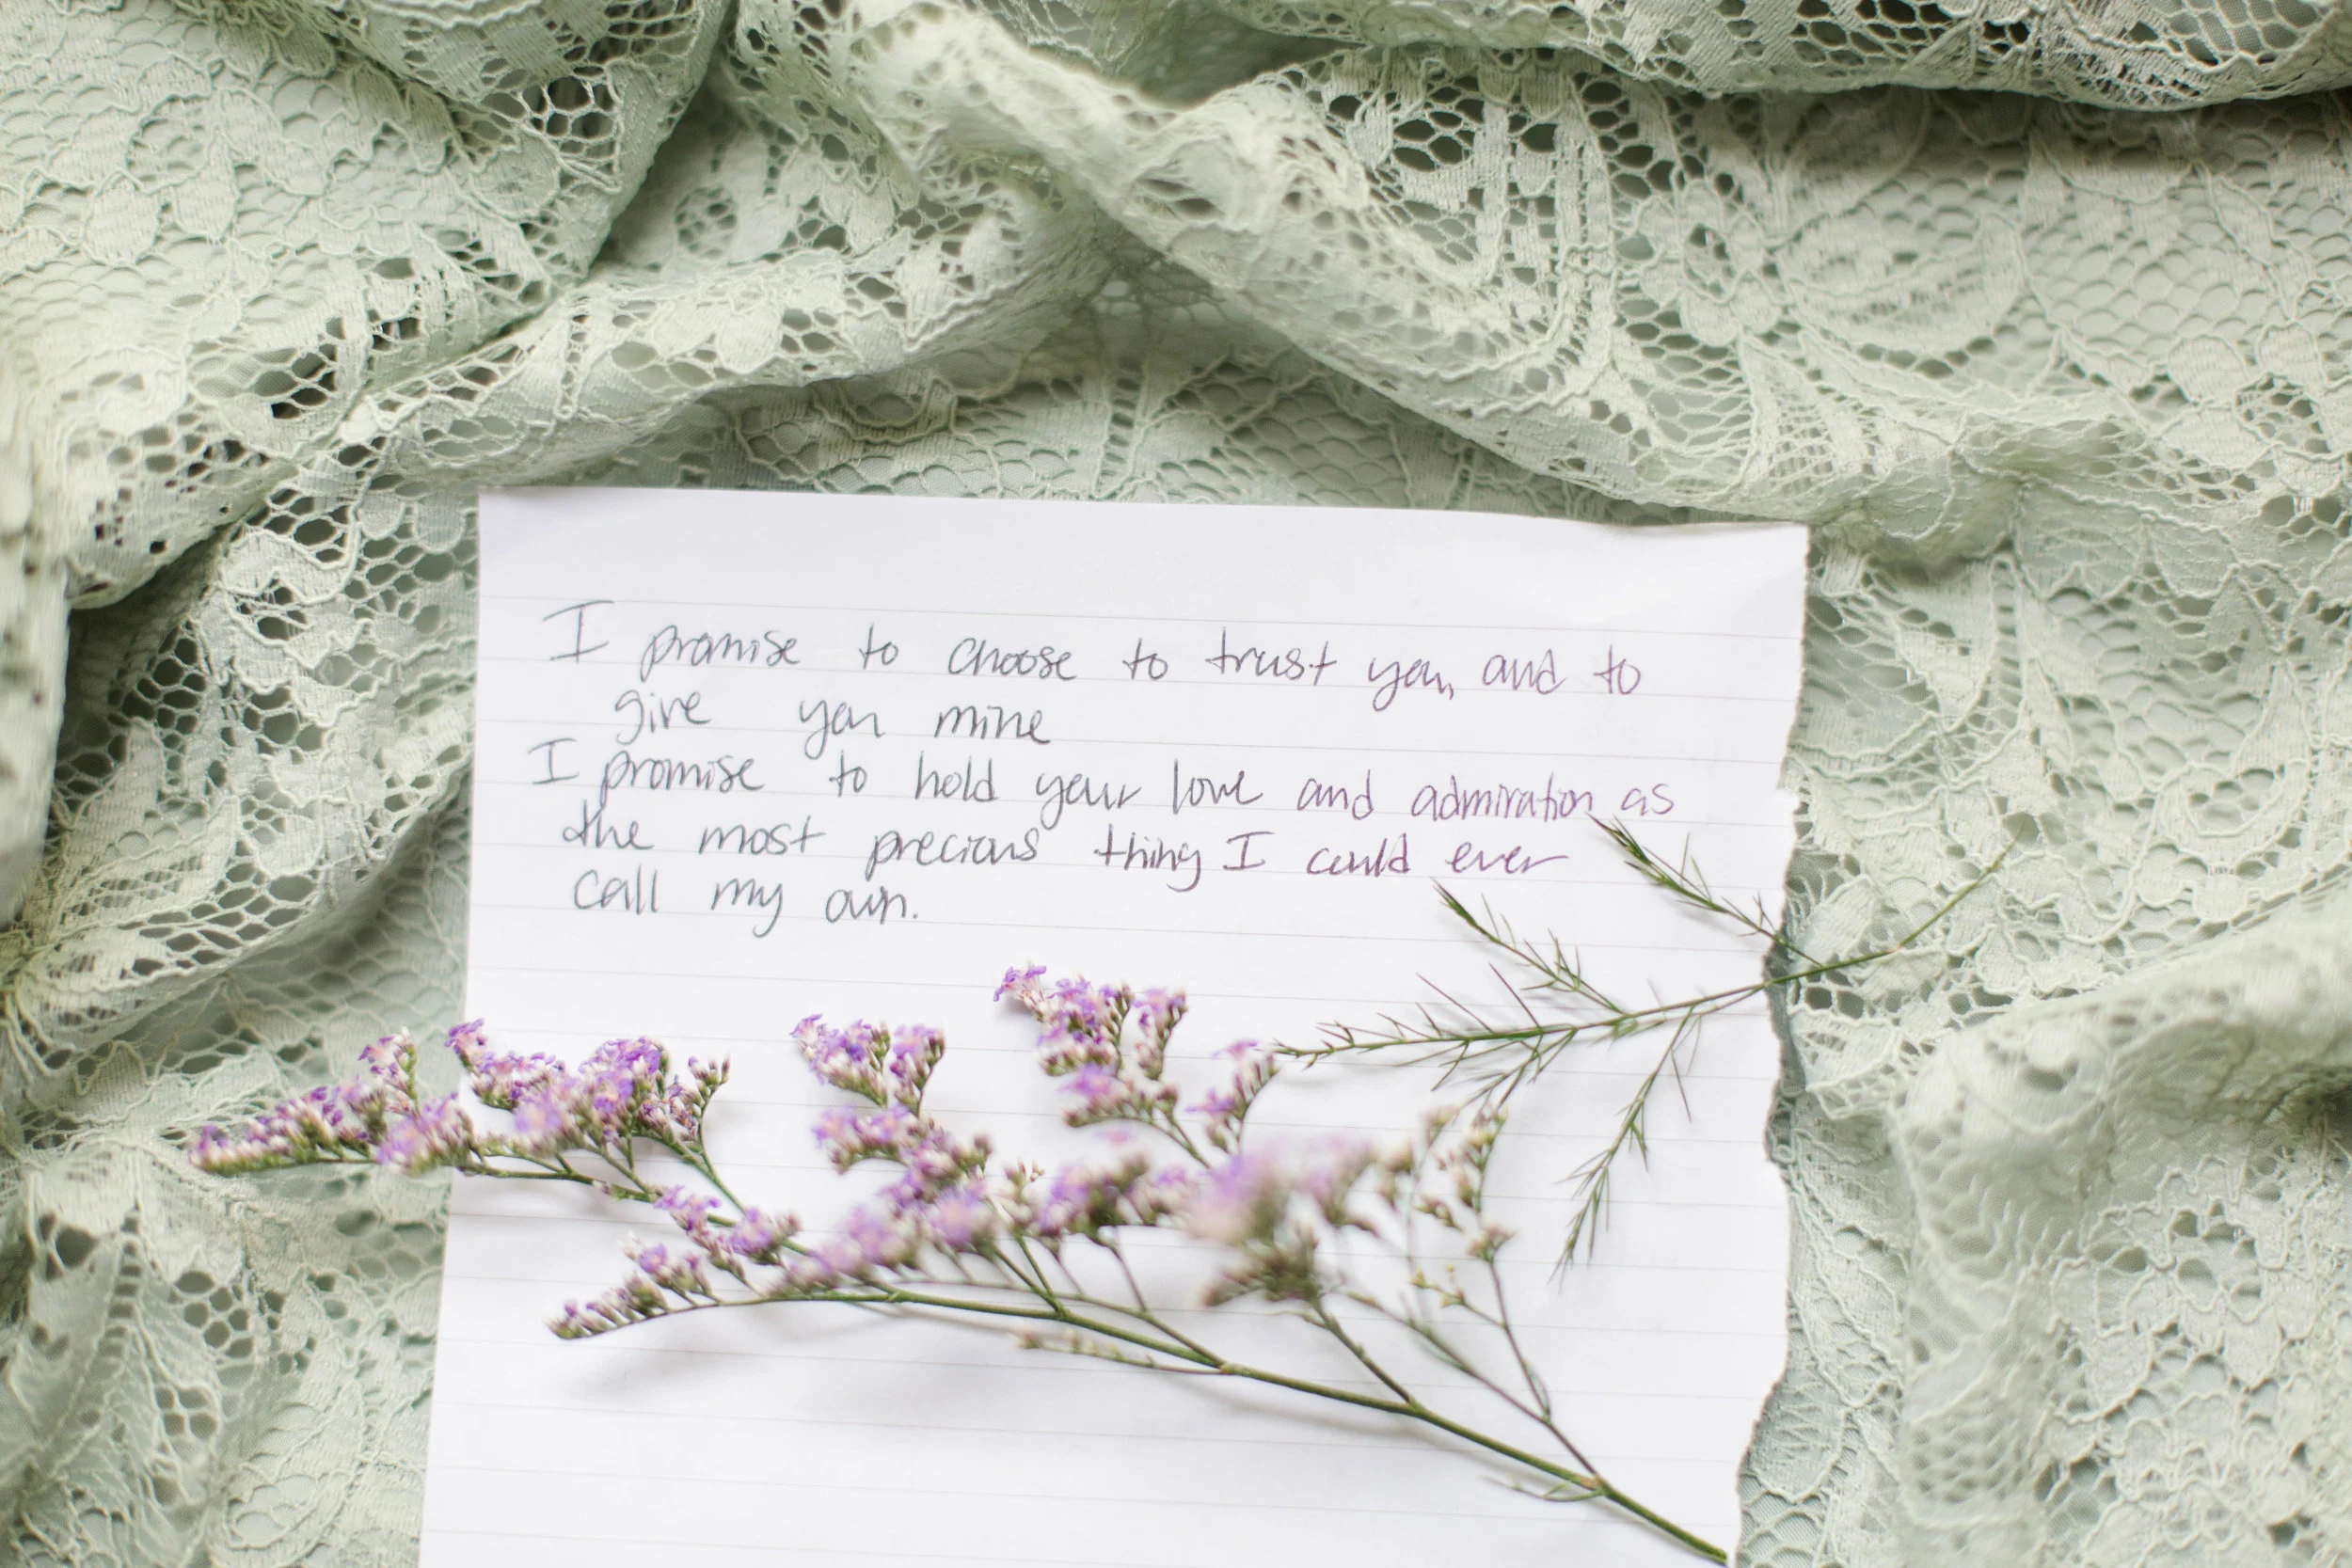 I promise to choose to trust you, and to
give you mine
I promise to hold your love and admiration as
the most precious thing I could ever
call my own.